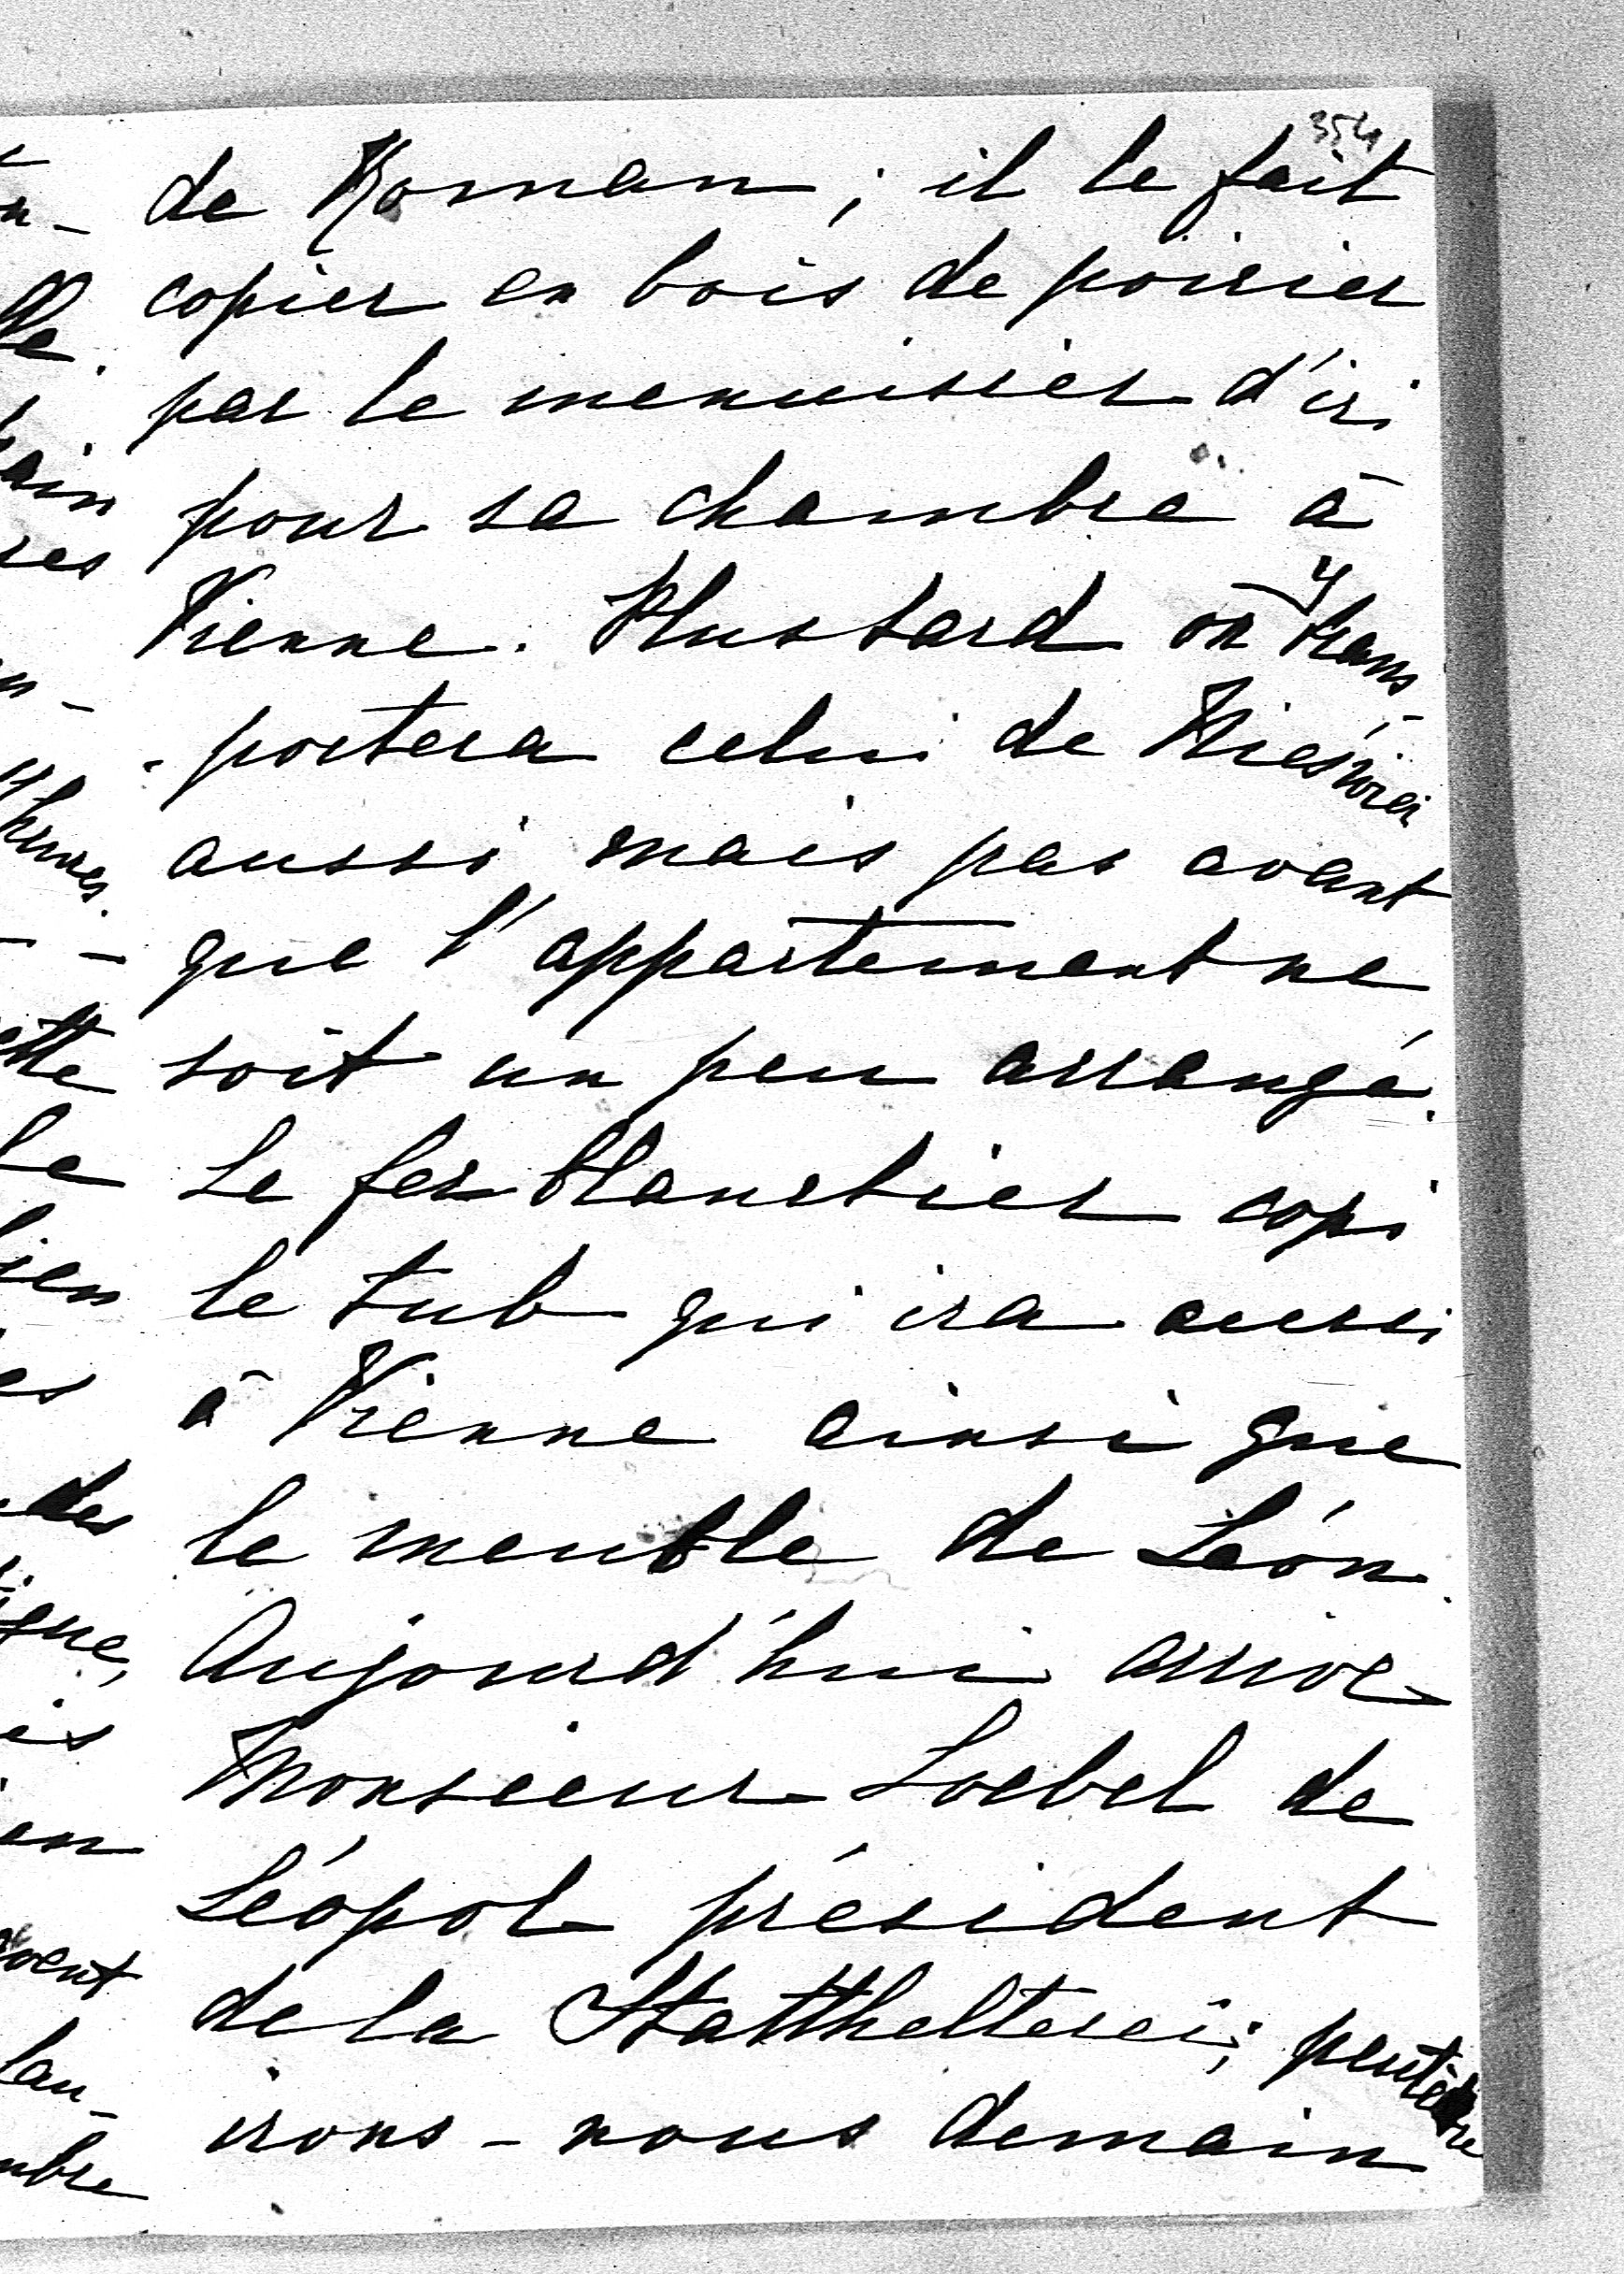 354
de Roman ; il le fait
copier en bois de poirier
par le menuisier d'ici
pour sa chambre à
Vienne. Plus tard on y trans-
portera celui de
aussi mais pas avant
que l'appartement ne
soit un peu arrangé.
Le ferblanctier copi
le tub qui ira aussi
à Vienne ainsi que
le meuble de Léon.
Aujourd'hui arrive
Monsieur Loebel de
Léopol président
de la Statthelterei; peutêtre
irons-nous demain